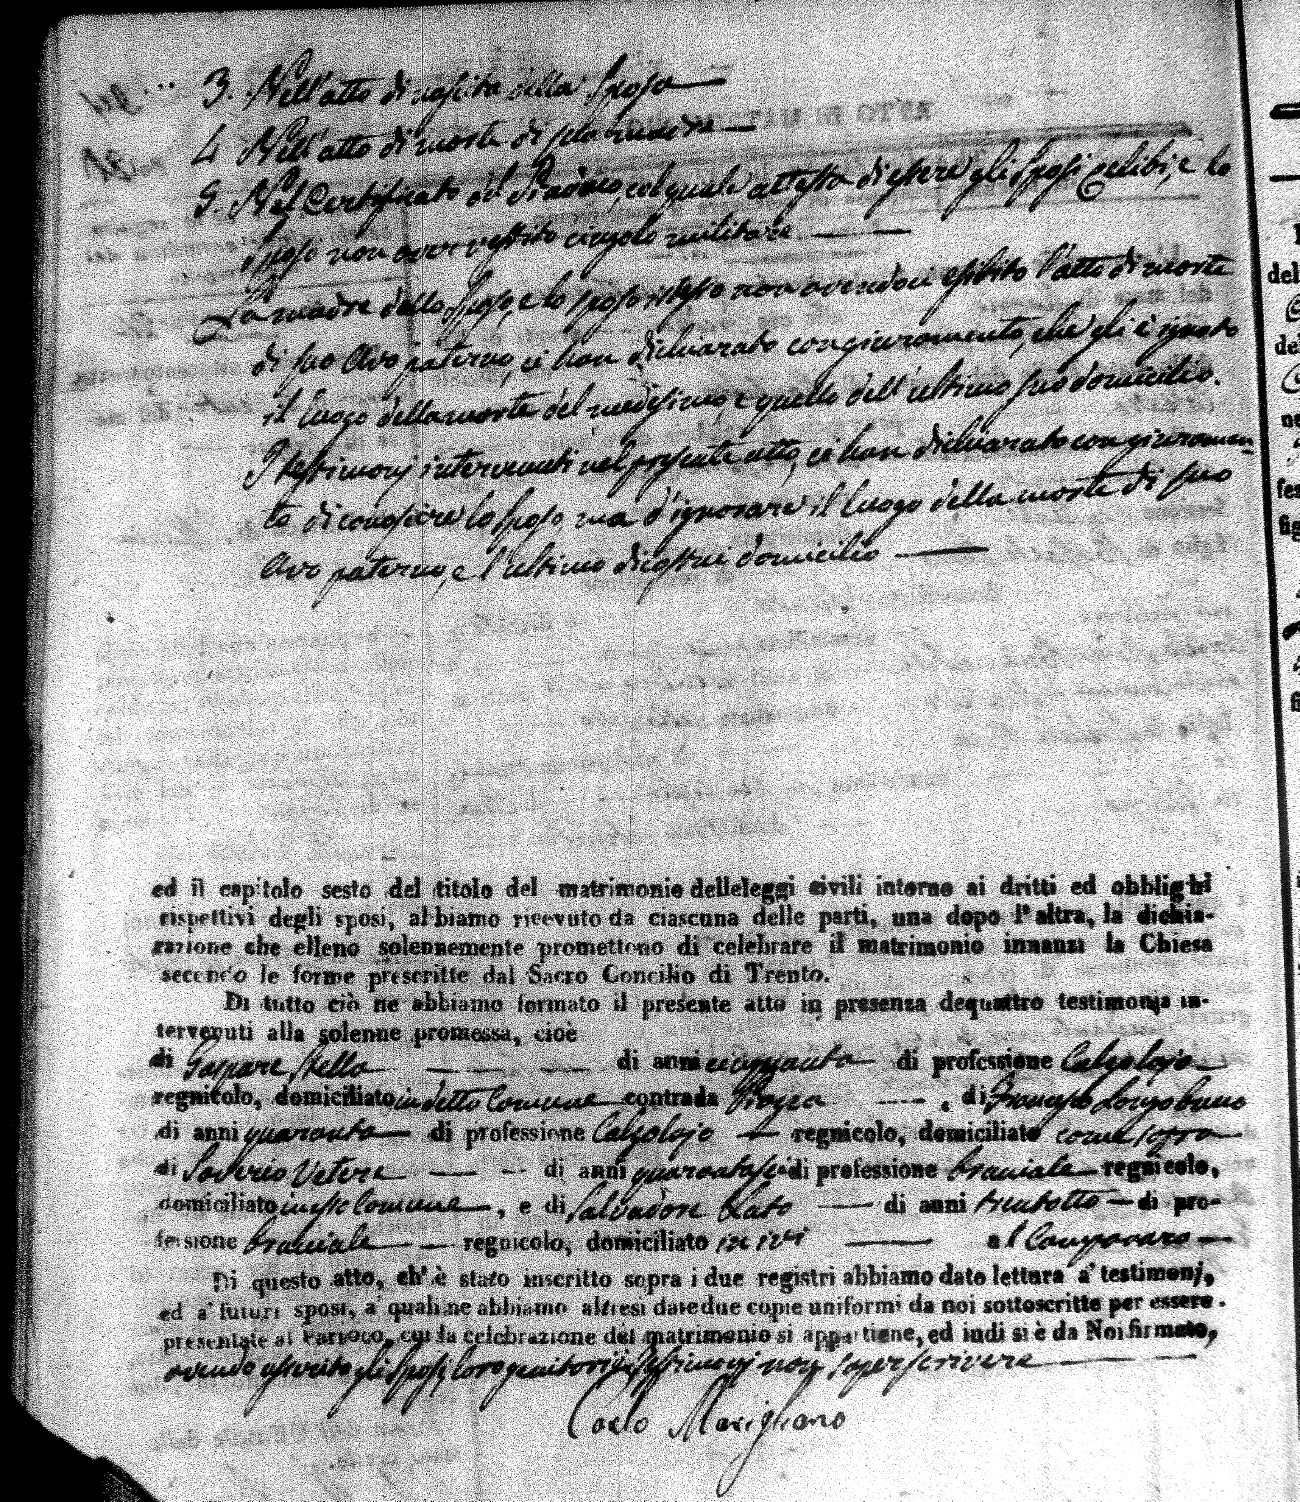 3. Nell'atto di nascita della Sposa
4. Nell'atto di morte di sua madre
5. Nel Certificato del Parroco, col quale attesta di essere gli Sposi Celibi, e lo
Sposo non aver vestito cingolo militare
La madre dello Sposo, e lo sposo istesso non avendoci esibito l'atto di morte
di suo Avo paterno, ci han dichiarato con giuramento, che gli è ignoto
il luogo della morte del medesimo, e quello dell'ultimo suo domicilio.
I testimonj intervenuti nel presente atto, ci han dichiarato con giuramen-
to di conoscere lo Sposo ma d'ignorare il luogo della morte di suo
Avo paterno, e l'ultimo di costui domicilio
ed il capitolo sesto del titolo del matrimonio delle leggi civili intorno ai dritti ed obblighi
rispettivi degli sposi, abbiamo ricevuto da ciascuna delle parti, una dopo l'altra, la dichia-
razione che elleno solennemente promettono di celebrare il matrimonio innanzi la Chiesa
secondo le forme prescritte dal Sacro Concilio di Trento.
Di tutto ciò ne abbiamo formato il presente atto in presenza de quattro testimonja in-
tervenuti alla solenne promessa, cioè
di Gaspare Stella di anni cinquanta di professione Calzolojo
regnicolo, domiciliato in detto Comune contrada , di Francesco Longobucco
di anni quaranta di professione Calzolojo regnicolo, domiciliato come sopra
di Saverio Vetere di anni quarantasei di professione braciale regnicolo,
domiciliato in esso Comune, e di Salvadore di anni trentotto di pro-
fessione braciale regnicolo, domiciliato in ivi al Camporaro
Di questo atto, ch'è stato inscritto sopra i due registri abbiamo dato lettura a' testimonj,
ed a' futuri sposi, a' quali ne abbiamo altresì date due copie uniformi da noi sottoscritte per essere
presentate al Parroco, cui la celebrazione del matrimonio si appartiene, ed indi si è da Noi firmato,
avendo asserito gli Sposi, loro genitori, e testimonj non saper scrivere
Carlo Marigliano